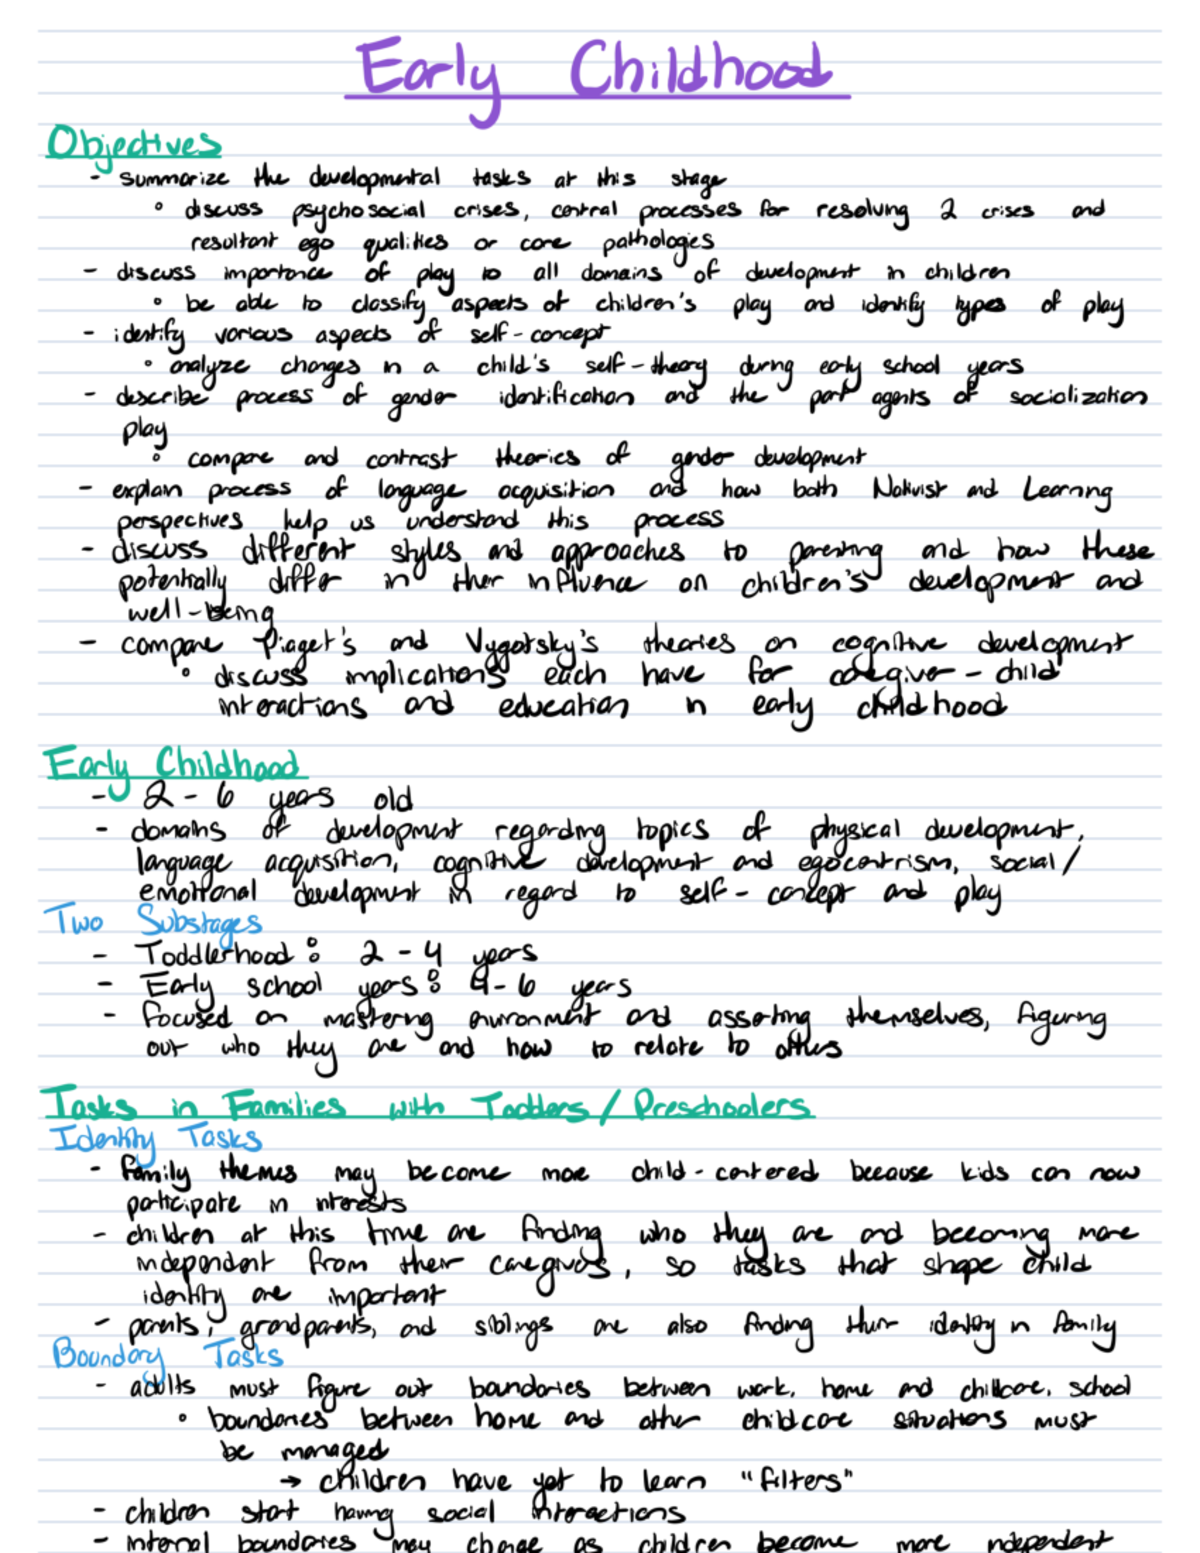 Early Childhood
Objectives
- summarize the developmental tasks at this stage
◦ discuss psychosocial crises, central processes for resolving 2 crises and
resultant ego qualities or core pathologies
- discuss importance of play to all domains of development in children
◦ be able to classify aspects of children's play and identify types of play
- identify various aspects of self-concept
◦ analyze changes in a child's self-theory during early school years
- describe process of gender identification and the part agents of socialization
play
◦ compare and contrast theories of gender development
- explain process of language acquisition and how both Nativist and Learning
perspectives help us understand this process
- discuss different styles and approaches to parenting and how these
potentially differ in their influence on children's development and
well-being
- compare Piaget's and Vygotsky's theories on cognitive development
◦ discuss implications each have for caregiver-child
interactions and education in early childhood
Early Childhood
- 2-6 years old
- domains of development regarding topics of physical development,
language acquisition, cognitive development and egocentrism, social/
emotional development in regard to self-concept and play
Two Substages
- Toddlerhood: 2-4 years
- Early school years: 4-6 years
- focused on mastering environment and asserting themselves, figuring
out who they are and how to relate to others
Tasks in Families with Toddlers/Preschoolers
Identity Tasks
- family themes may become more child-centered because kids can now
participate in interests
- children at this time are finding who they are and becoming more
independent from their caregivers, so tasks that shape child
identity are important
- parents, grandparents, and siblings are also finding their identity in family
Boundary Tasks
- adults must figure out boundaries between work, home and childcare, school
◦ boundaries between home and other childcare situations must
be managed
→ children have yet to learn "filters"
- children start having social interactions
- internal boundaries may change as children become more independent